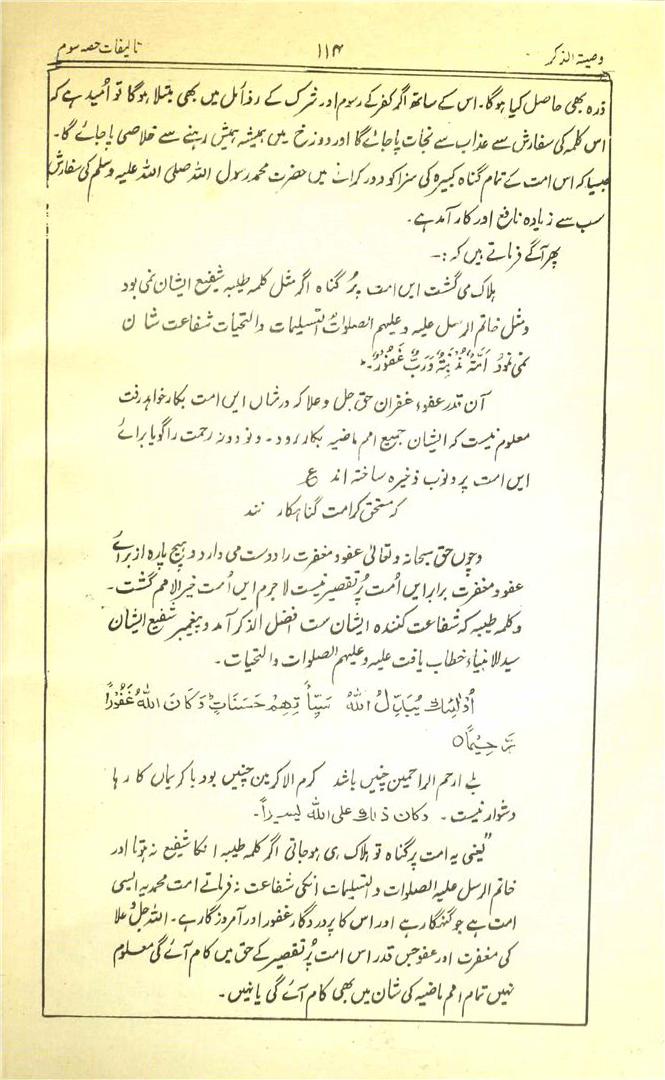 وصیۃ الذکر ۱۱۴ تالیفات حصہ سوم
ذرہ بھی حاصل کیا ہوگا۔ اس کے ساتھ اگر کفر کے رسوم اور شرک کے رذائل میں بھی مبتلا ہوگا تو اُمید ہے کہ
اس کلمہ کی سفارش سے عذاب سے نجات پا جائے گا اور دوزخ میں ہمیشہ ہمیش رہنے سے خلاصی پا جائے گا۔
جیسا کہ اس امت کے تمام گناہ کبیرہ کی سزا کو دور کرانے میں حضرت محمد رسول اللہ صلی اللہ علیہ وسلم کی سفارش
سب سے زیادہ نافع اور کار آمد ہے۔
پھر آگے فرماتے ہیں کہ :۔
ہلاک می گشت ایں امت پُر گناہ اگر مثل کلمہ طیبہ شفیع ایشان نمی بود
و مثل خاتم الرسل علیہ و علیہم الصلوات والتسلیمات والتحیات شفاعت شان
نمی نمود اُمَّةٌ مُذْنِبَةٌ وَرَبٌّ غَفُوْرٌ۔
آن قدر عفو و غفران حق جل و علا کہ در شاں ایں امت بکار خواہد رفت
معلوم نیست کہ ایشان جمیع امم ماضیہ بکار رود۔ و نود و نہ رحمت را گویا برائے
ایں امت پر ذنوب ذخیرہ ساختہ اند ع
کہ مستحق کرامت گناہکار نند
وچوں حق سبحانہ و تعالیٰ عفو و مغفرت را دوست می دارد و ہیچ پارہ از برائے
عفو و مغفرت برابر ایں اُمت پُر تقصیر نیست لا جرم ایں اُمت خیر الامم گشت۔
و کلمہ طیبہ کہ شفاعت کنندہ ایشان ست افضل الذکر آمد و پیغمبر شفیع ایشان
سید الانبیاء خطاب یافت علیہ و علیہم الصلوات والتحیات۔
اُولٰئِكَ يُبَدِّلُ اللهُ سَيِّاٰتِهِمْ حَسَنَاتٍ وَكَانَ اللهُ غَفُوْرًا
رَّحِيْمًا ○
بلے ارحم الراحمین چنیں باشد کرم الاکرمین چنیں بود با کریماں کا رہا
دشوار نیست۔ وكان ذلك على الله يسيراً۔
"یعنی یہ امت پر گناہ تو ہلاک ہی ہوجاتی اگر کلمہ طیبہ انکا شفیع نہ ہوتا اور
خاتم الرسل علیہ الصلوات والتسلیمات انکی شفاعت نہ فرماتے امت محمدیہ ایسی
امت ہے جو گنہگار ہے اور اس کا پروردگار غفور اور آمرزگار ہے۔ اللہ جل و علا
کی مغفرت اور عفو جس قدر اس امت پُر تقصیر کے حق میں کام آئے گی معلوم
نہیں تمام امم ماضیہ کی شان میں بھی کام آئے گی یا نہیں۔